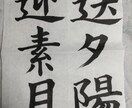 送夕陽
迎素月